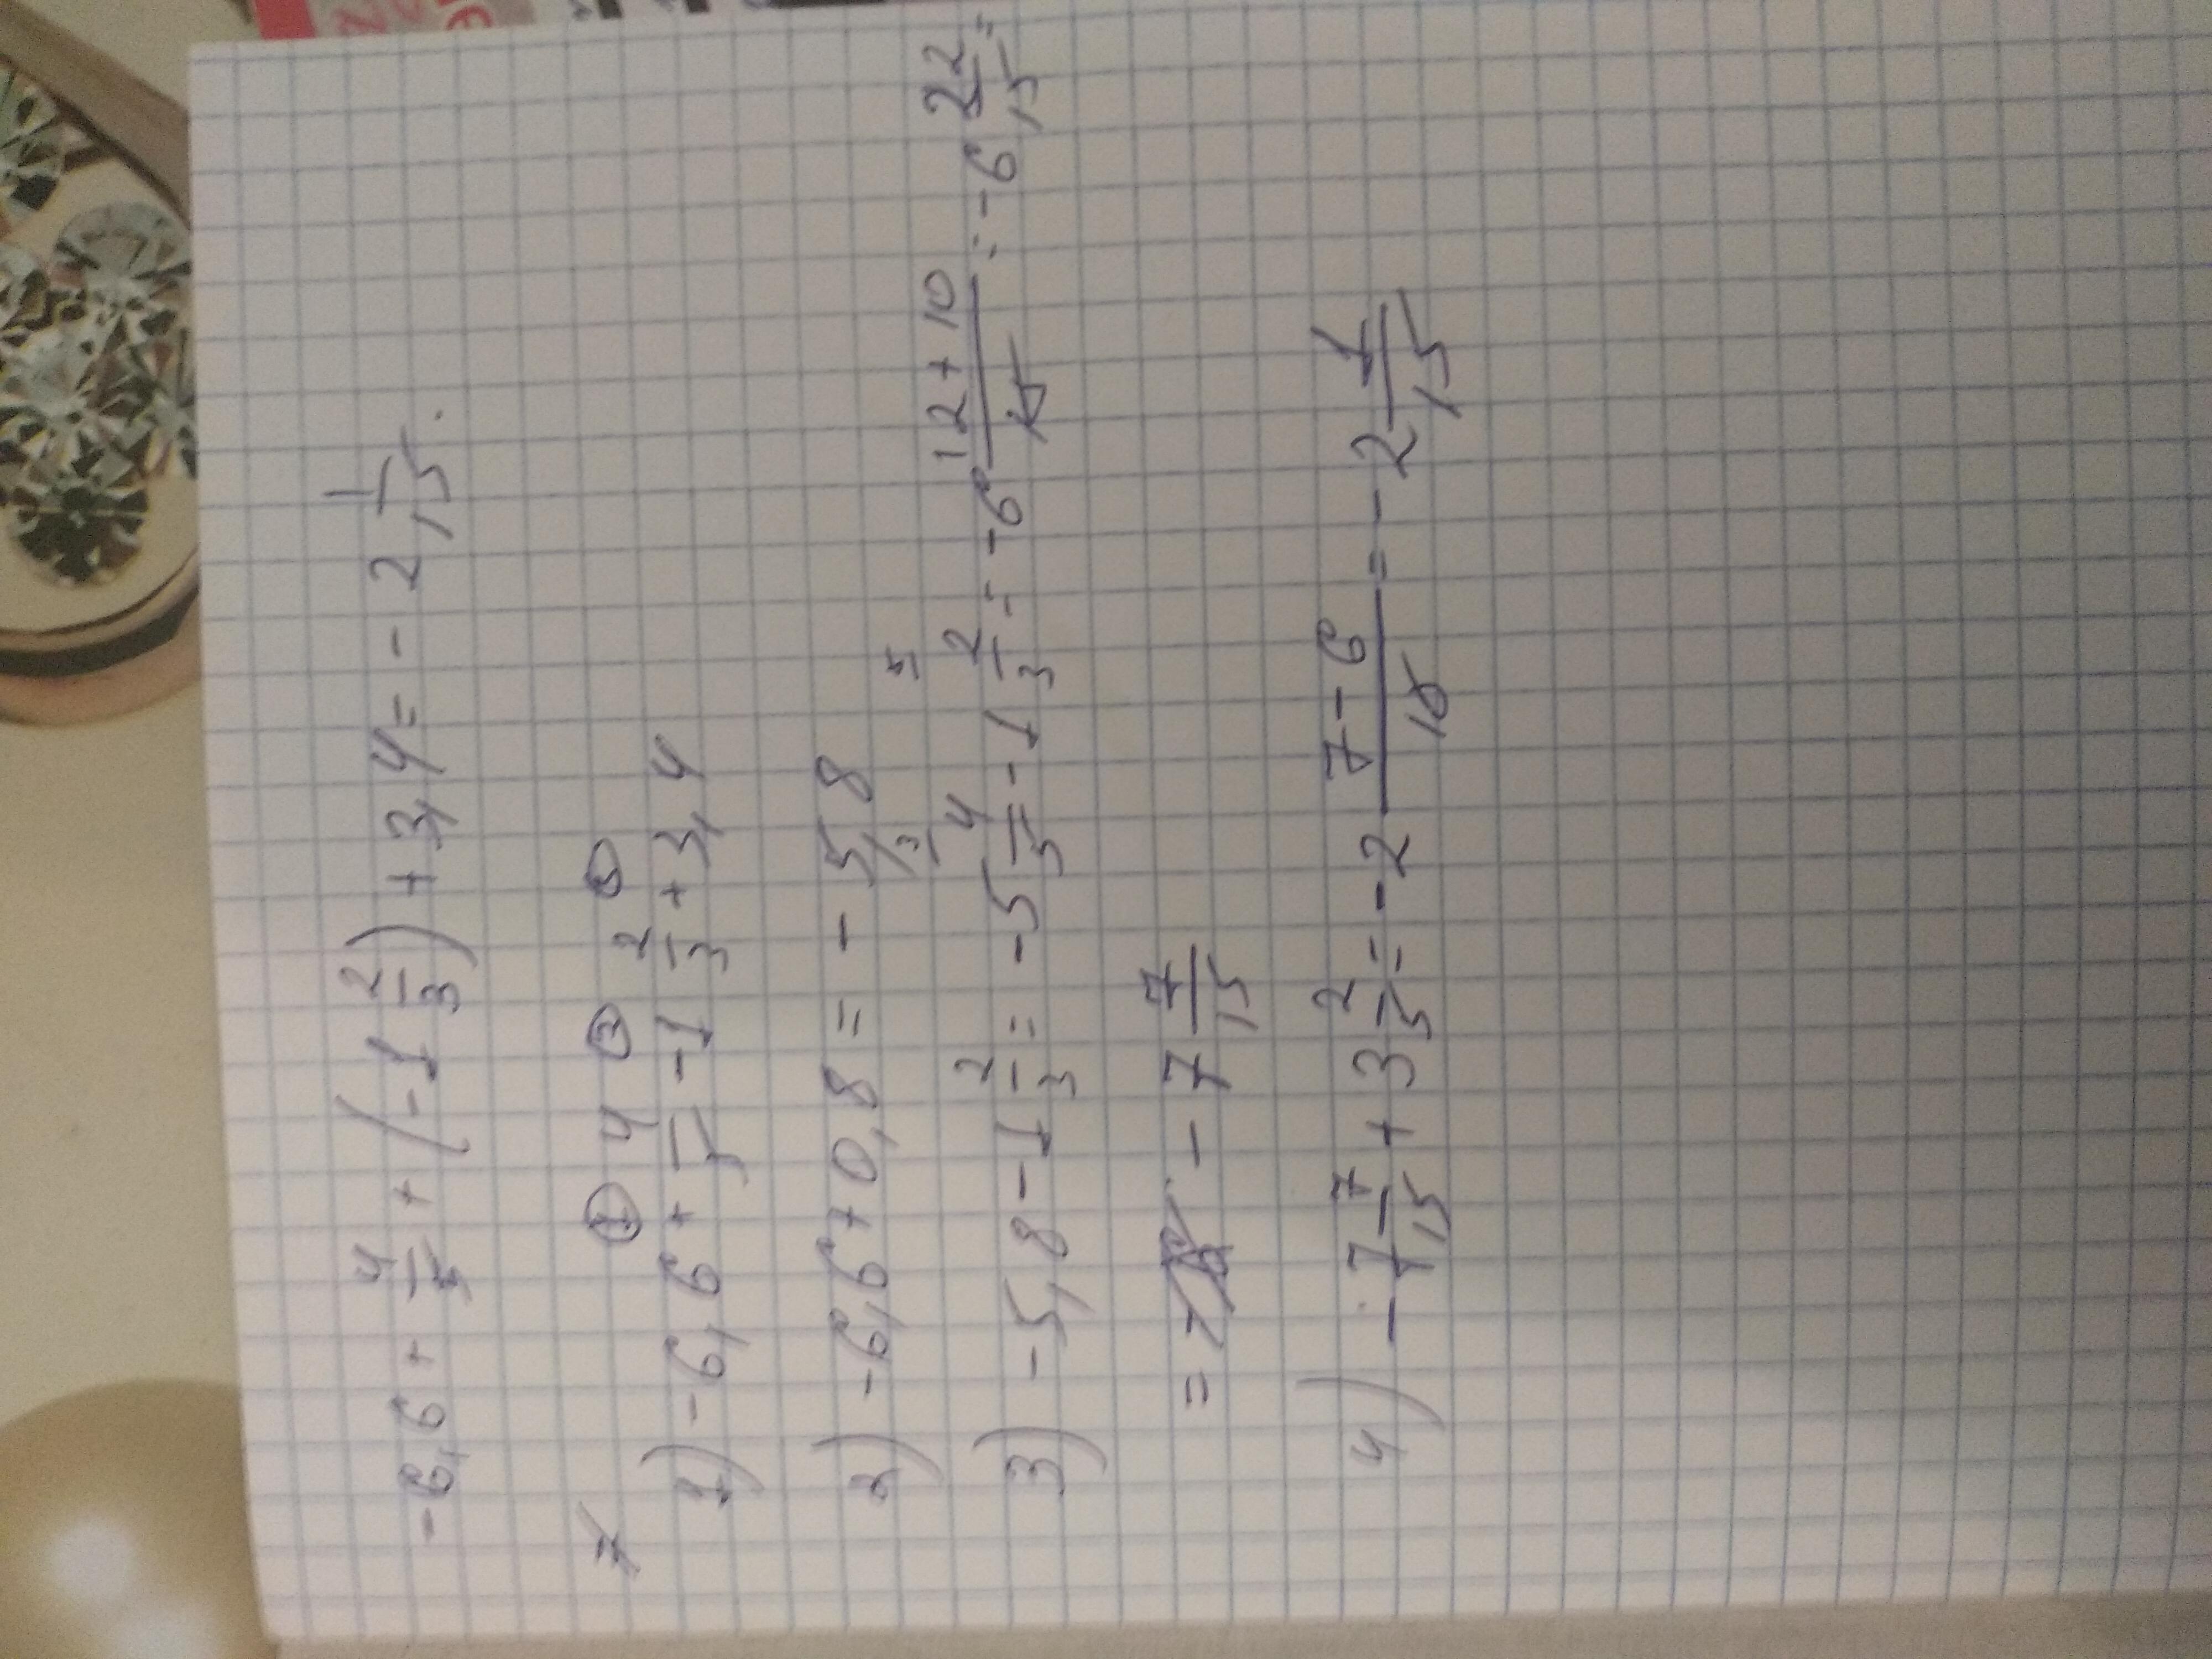 -6,6 + 4/5 + (-1 2/3) + 3,4 = - 2 1/15.
1) -6,6 + 4/5 - 1 2/3 + 3,4
2) -6,6 + 0,8 = - 5,8
3) -5,8 - 1 2/3 = -5 4/5 - 1 2/3 = -6 12+10/15 = -6 22/15 =
= - 7 7/15
4) - 7 7/15 + 3 2/5 = - 2 7-6/15 = - 2 1/15